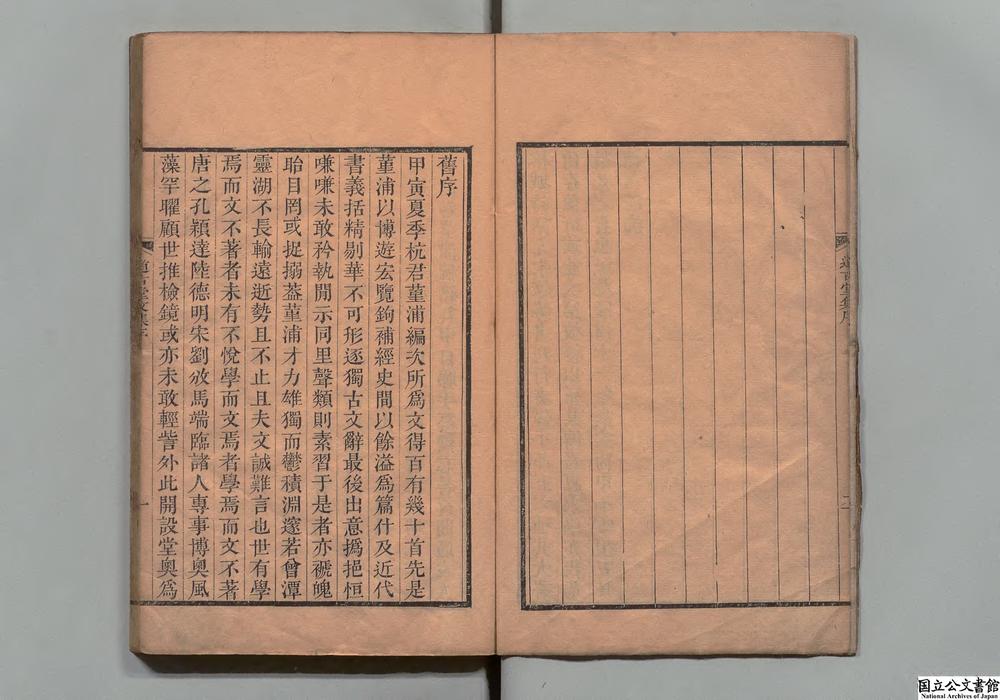 道古堂集序
二
舊序
甲寅夏季杭君菫浦編次所爲文得百有幾十首先是
菫浦以博遊宏覽鉤補經史間以餘溢爲篇什及近代
書義括精剔華不可形逐獨古文辭最後出意撝挹恒
嗛嗛未敢矜執閒示同里聲類則素習于是者亦褫魄
眙目罔或捉搦葢菫浦才力雄獨而鬱積淵邃若曾潭
靈湖不長輸遠逝勢且不止且夫文誠難言也世有學
焉而文不著者未有不悅學而文焉者學焉而文不著
唐之孔穎達陸德明宋劉攽馬端臨諸人專事博奧風
藻罕曜顧世推檢鏡或亦未敢輕訾外此開設堂奧爲
道古堂文集序
一
国立公文書館
National Archives of Japan